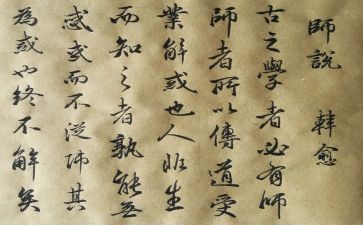 師說 韓愈
古之學者必有師
師者所以傳道受
業解惑也人非生
而知之者孰能無
惑惑而不從師其
為惑也終不解矣